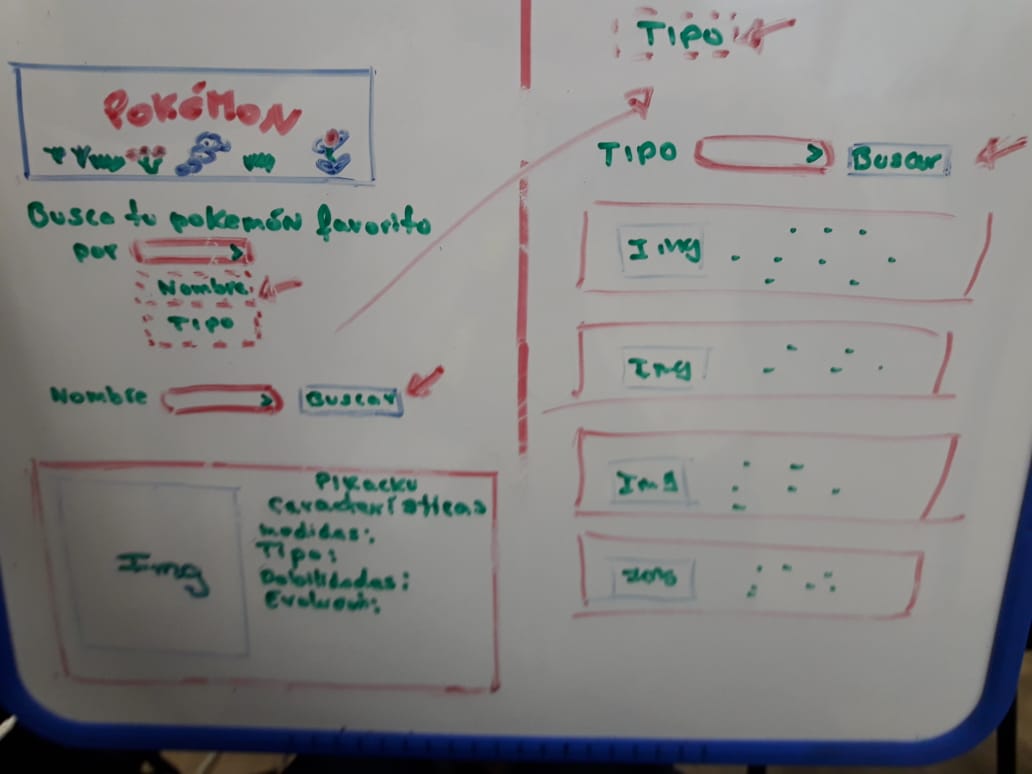 Pokémon
Busca tu pokemón favorito
por >
Nombre
Tipo
Nombre > Buscar
Img
Pikacku
Características
medidas:
Tipo:
Debilidades:
Evolucion:
Tipo
Tipo > Buscar
Img
Img
Img
Img